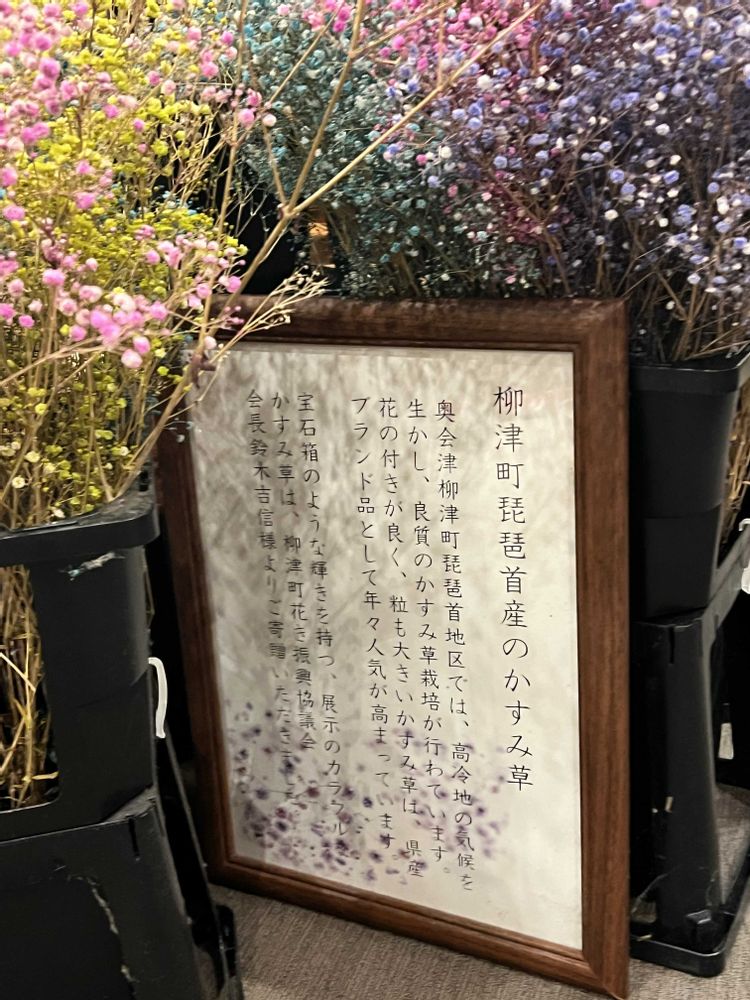 柳津町琵琶首産のかすみ草
奥会津柳津町琵琶首地区では、高冷地の気候を
生かし、良質のかすみ草栽培が行わています。
花の付きが良く、粒も大きいかすみ草は、県産
ブランド品として年々人気が高まっています。
宝石箱のような輝きを持つ、展示のカラフルな
かすみ草は、柳津町花き振興協議会
会長鈴木吉信様よりご寄贈いただきました